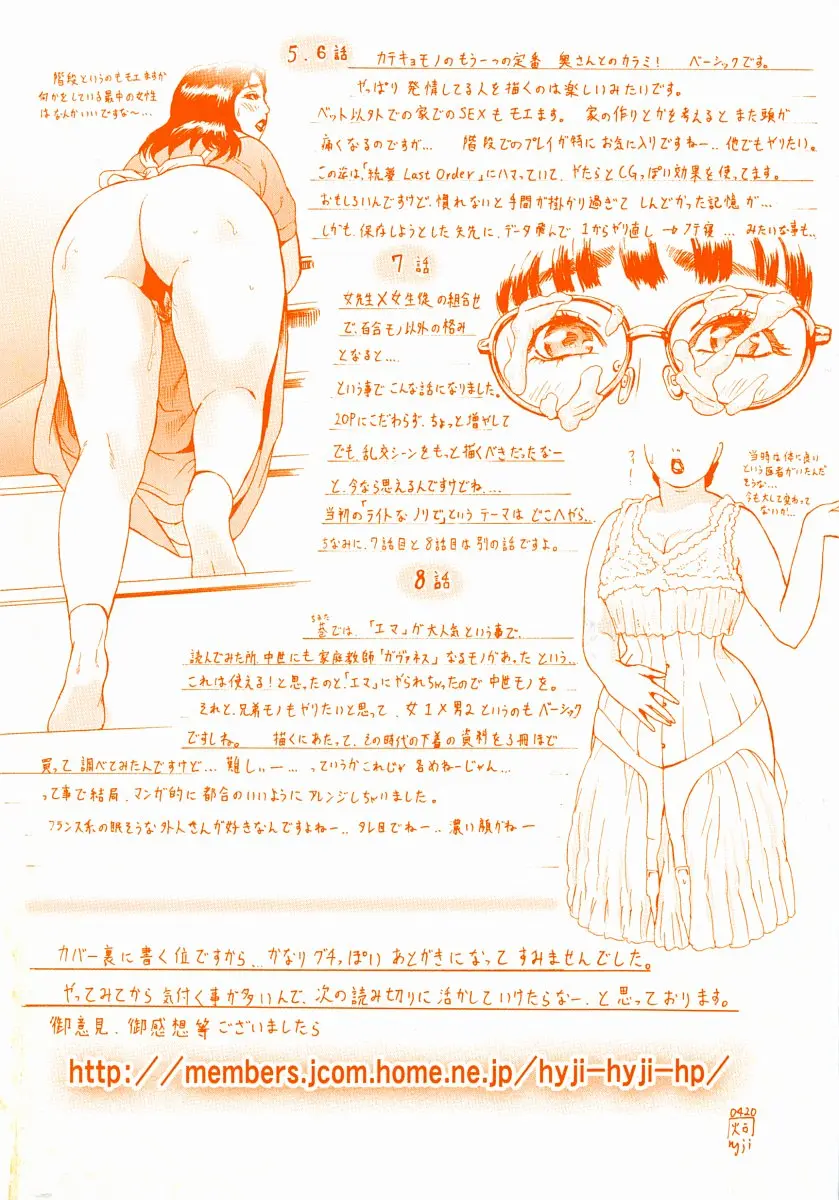 5.6話
階段というのもモエますが
何かをしている最中の女性
はなんかいいですな〜…
カテキョモノのもう一つの定番 奥さんとのカラミ! ベーシックです。
やっぱり 発情してる人を描くのは楽しいみたいです。
ベット以外での家でのSEXも モエます。 家の作りとかを考えると また頭が
痛くなるのですが… 階段でのプレイが特にお気に入りですねー.. 他でもやりたい。
この 「統夢 Last Order」にハマっていて、やたらとCGっぽい効果を使ってます。
おもしろいんですけど、慣れないと手間が掛かり過ぎて しんどかった記憶が…
しかも、保存しようとした矢先に、データ飛んで 1からやり直し → フテ寝 … みたいな事も、
7話
女先生×女生徒の組合せ
で、百合モノ以外の絡み
となると…
という事で こんな話になりました。
20Pにこだわらず、ちょっと増やして
でも、乱交シーンをもっと描くべきだったなー
と、今なら思えるんですけどね….
当初の「ライトなノリで」というテーマは どこへやら…
ちなみに、7話目と8話目は別の話ですよ。
当時は体に良い
という医者がいたんだ
そうな…
今も大して変わって
ないか!…
8話
ちまた
巷では、「エマ」が大人気という事で、
読んでみた所、中世にも家庭教師「ガヴァネス」なるモノがあったという..
これは使える!と思ったのと、「エマ」にやられちゃったので中世モノを。
それと、兄弟モノもやりたいと思って、女1×男2というのもベーシック
ですしね。 描くにあたって、その時代の下着の資料を3冊ほど
買って調べてみたんですけど… 難しぃー… っていうかこれじゃ 責めねーじゃん…
って事で結局、マンガ的に都合のいいようにアレンジしちゃいました。
フランス系の眠そうな外人さんが好きなんですよねー.. タレ目でねー.. 濃い顔がねー
カバー裏に書く位ですから… かなりグチっぽい あとがきになって すみませんでした。
やってみてから気付く事が多いんで、次の読み切りに活かしていけたらなー、と思っております。
御意見、御感想等ございましたら
http://members.jcom.home.ne.jp/hyji-hyji-hp/
0420
hyji